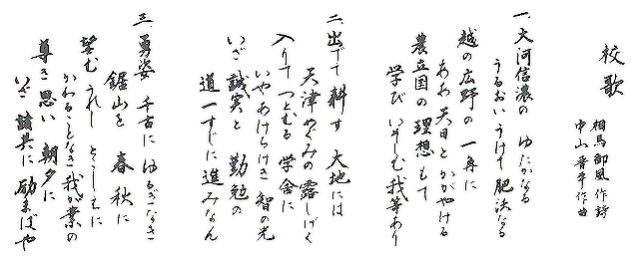 校歌
相馬御風 作詩
中山晋平 作曲
一、大河信濃の ゆたかなる
うるおいうけて 肥沃なる
越の広野の 一角に
ああ 天日と かがやける
農立国の 理想 もて
学び いそしむ 我等あり
二、出でて 耕す 大地には
天津めぐみの 露しげく
入りて つとむる 学舎に
いやあけらけき 智の光
いざ 誠実と 勤勉の
道一すじに 進みなん
三、勇姿 千古に ゆるぎなき
鋸山を 春秋に
望む うれし とこしえに
かわることなき 我が業の
尊き 思い 朝夕に
いざ 諸共に 励まばや